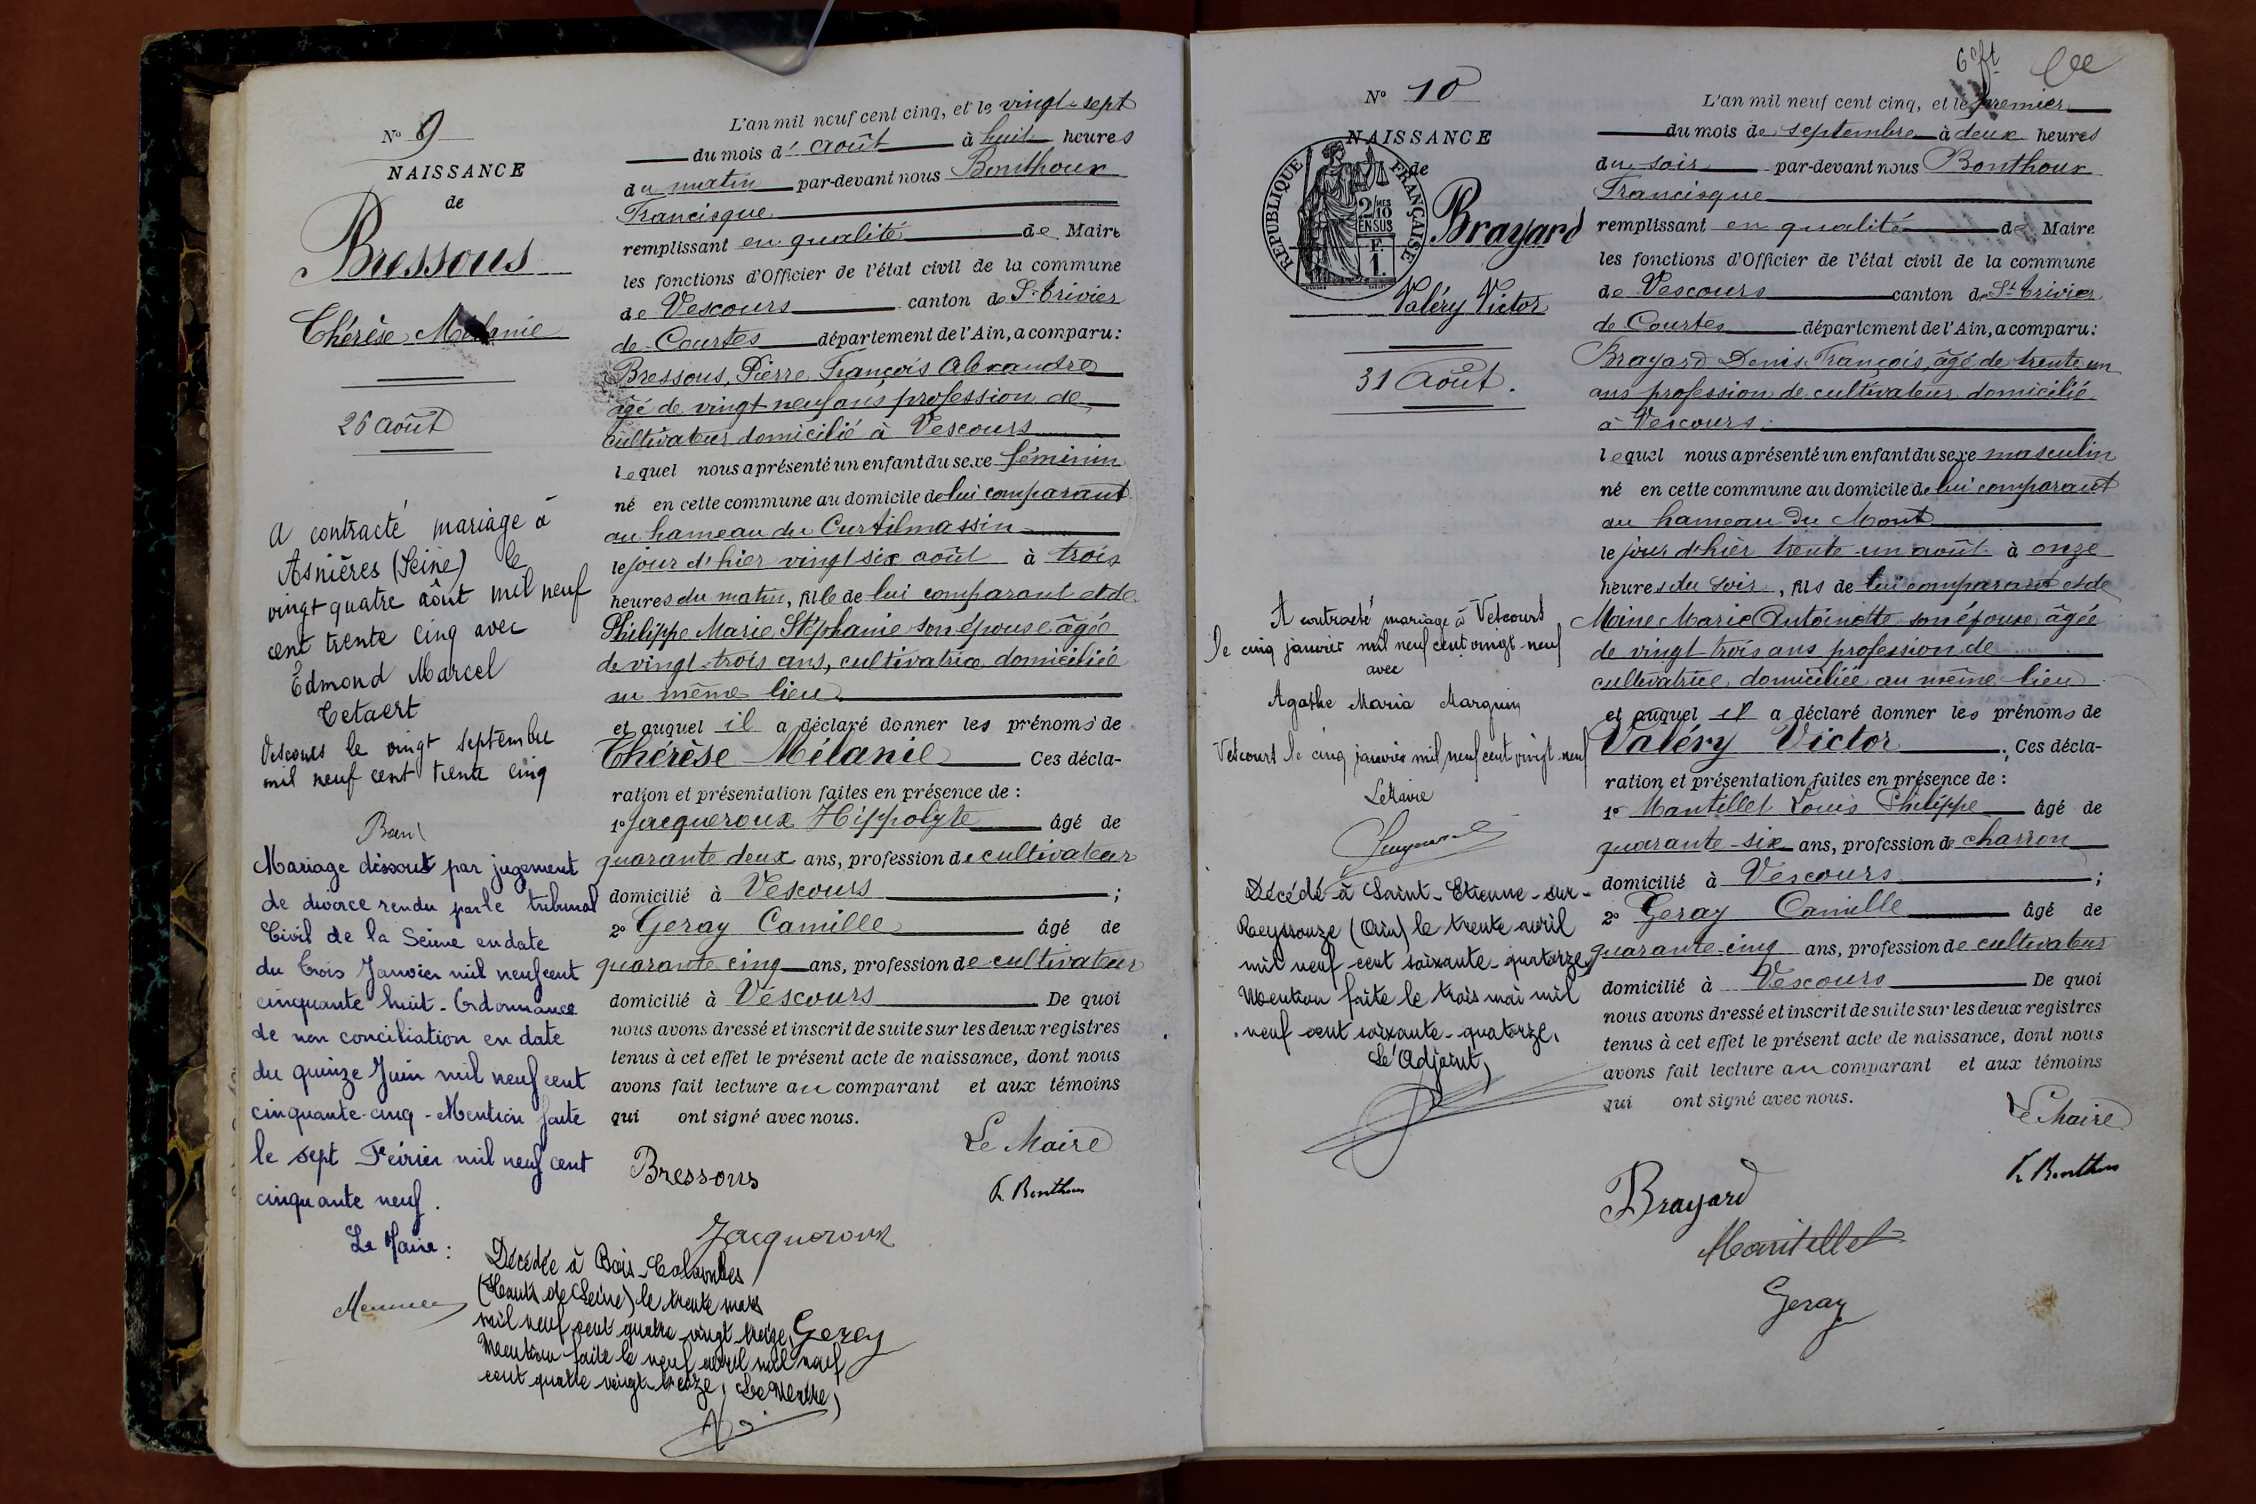 N° 9
NAISSANCE
de
Bressous
Thérèse Mélanie
26 août
A contracté mariage à
Asnières (Seine) le
vingt quatre août mil neuf
cent trente cinq avec
Edmond Marcel
Cetaert
Vescours le vingt septembre
mil neuf cent trente cinq
Mariage dissout par jugement
de divorce rendu par le tribunal
Civil de la Seine en date
du trois Janvier mil neuf cent
cinquante huit - Ordonnance
de non conciliation en date
du quinze Juin mil neuf cent
cinquante-cinq - Mention faite
le sept Février mil neuf cent
cinquante neuf.
Le Maire :
L'an mil neuf cent cinq, et le vingt-sept
du mois d' août à huit heures
du matin par-devant nous Bonthoux
Francisque
remplissant en qualité de Maire
les fonctions d'Officier de l'état civil de la commune
de Vescours canton de St-Trivier
de Courtes département de l'Ain, a comparu :
Bressous, Pierre François Alexandre
âgé de vingt neuf ans, profession de
cultivateur domicilié à Vescours
lequel nous a présenté un enfant du sexe féminin
né en cette commune au domicile de lui comparant
au hameau du Curtilmassin
le jour d'hier vingt six août à trois
heures du matin, fille de lui comparant et de
Philippe Marie Stéphanie son épouse âgée
de vingt-trois ans, cultivatrice domiciliée
au même lieu
et auquel il a déclaré donner les prénoms de
Thérèse Mélanie Ces décla-
ration et présentation faites en présence de :
1° Jacqueroux Hippolyte âgé de
quarante deux ans, profession de cultivateur
domicilié à Vescours ;
2° Geray Camille âgé de
quarante cinq ans, profession de cultivateur
domicilié à Vescours De quoi
nous avons dressé et inscrit de suite sur les deux registres
tenus à cet effet le présent acte de naissance, dont nous
avons fait lecture au comparant et aux témoins
qui ont signé avec nous.
Le Maire
Bressous
F. Bonthoux
Jacqueroux
Geray
Décédée à Bois-Colombes
(Hauts de Seine) le trente mars
mil neuf cent quatre vingt treize,
Mention faite le neuf avril mil neuf
cent quatre vingt-treize, Le Maire,
N° 10
NAISSANCE
de
REPUBLIQUE FRANÇAISE
2/10MES
EN SUS
F.
1.
Brayard
Valéry Victor
31 Août.
A contracté mariage à Vescours
le cinq janvier mil neuf cent vingt-neuf
avec
Agathe Maria Marguin
Vescours le cinq janvier mil neuf cent vingt-neuf
Le Maire
Décédé à Saint-Etienne-sur-
Reyssouze (Ain) le trente avril
mil neuf cent soixante-quatorze,
Mention faite le trois mai mil
neuf cent soixante-quatorze,
Le'Adjoint,
L'an mil neuf cent cinq, et le premier
du mois de septembre à deux heures
du soir par-devant nous Bonthoux
Francisque
remplissant en qualité de Maire
les fonctions d'Officier de l'état civil de la commune
de Vescours canton de St Trivier
de Courtes département de l'Ain, a comparu :
Brayard Denis François, âgé de trente un
ans profession de cultivateur domicilié
à Vescours
lequel nous a présenté un enfant du sexe masculin
né en cette commune au domicile de lui comparant
au hameau du Mont
le jour d'hier trente-un août à onze
heures du soir, fils de lui comparant et de
Moine Marie Antoinette son épouse âgée
de vingt trois ans profession de
cultivatrice domiciliée au même lieu
et auquel il a déclaré donner les prénoms de
Valéry Victor ; Ces décla-
ration et présentation faites en présence de :
1° Mantillet Louis Philippe âgé de
quarante-six ans, profession de charron
domicilié à Vescours ;
2° Geray Camille âgé de
quarante-cinq ans, profession de cultivateur
domicilié à Vescours De quoi
nous avons dressé et inscrit de suite sur les deux registres
tenus à cet effet le présent acte de naissance, dont nous
avons fait lecture au comparant et aux témoins
qui ont signé avec nous.
Le Maire
F. Bonthoux
Brayard
Mantillet
Geray